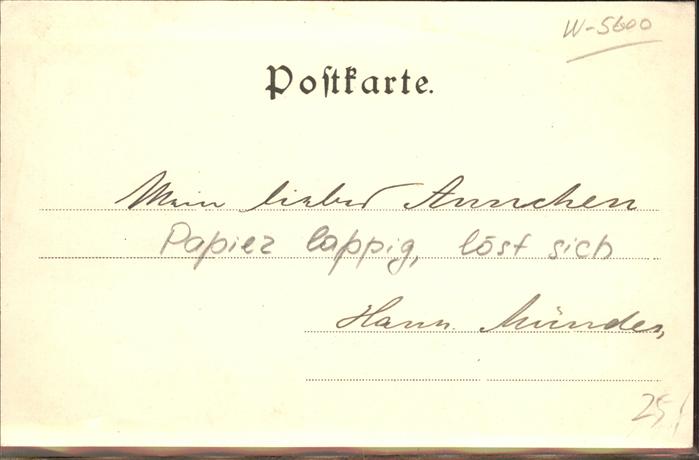 W-5600
Postkarte.
Mein liebes Annchen
Papier lappig, löst sich
Hann. Münden,
25